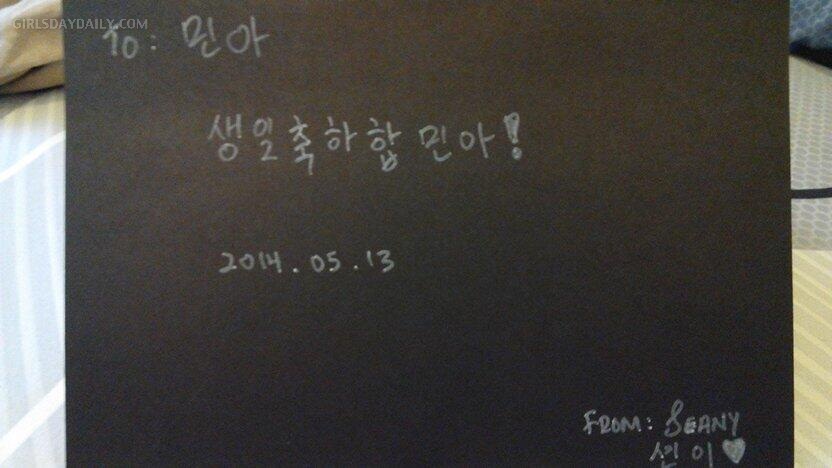 GIRLSDAYDAILY.COM
To: 민아
생일축하합 민아!
2014.05.13
FROM: SEANY
션이♥